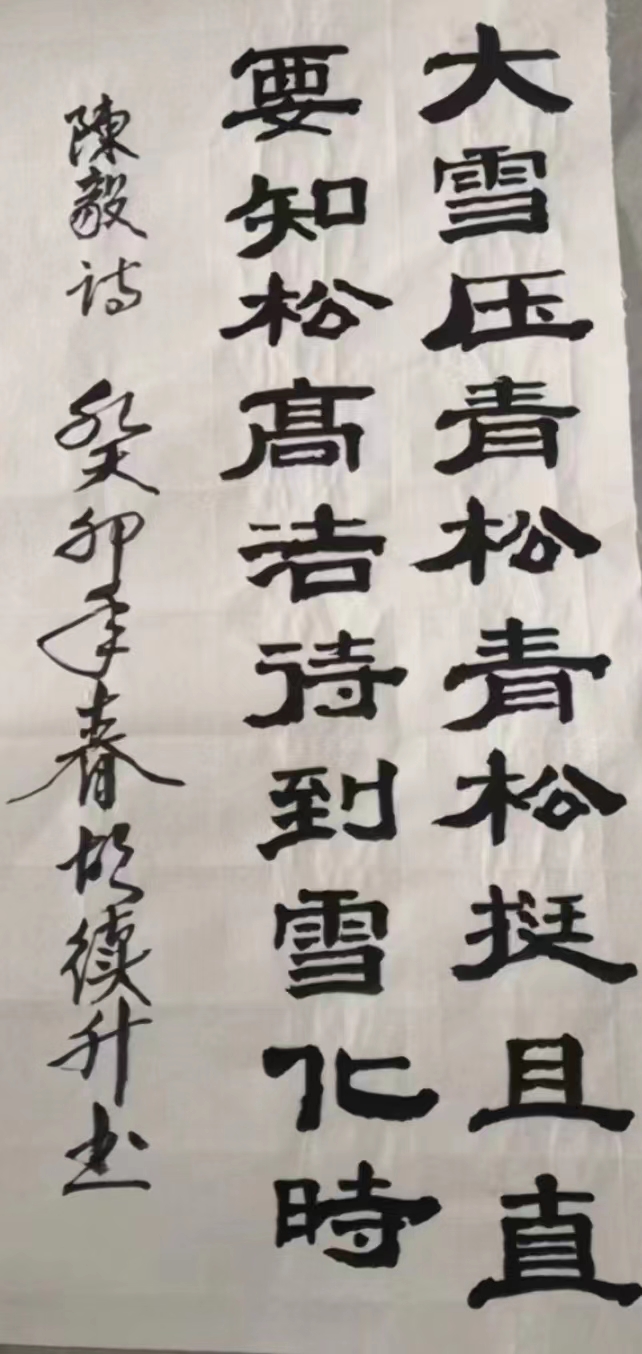 大雪压青松青松挺且直
要知松高洁待到雪化時
陳毅诗 癸卯年春胡续升书